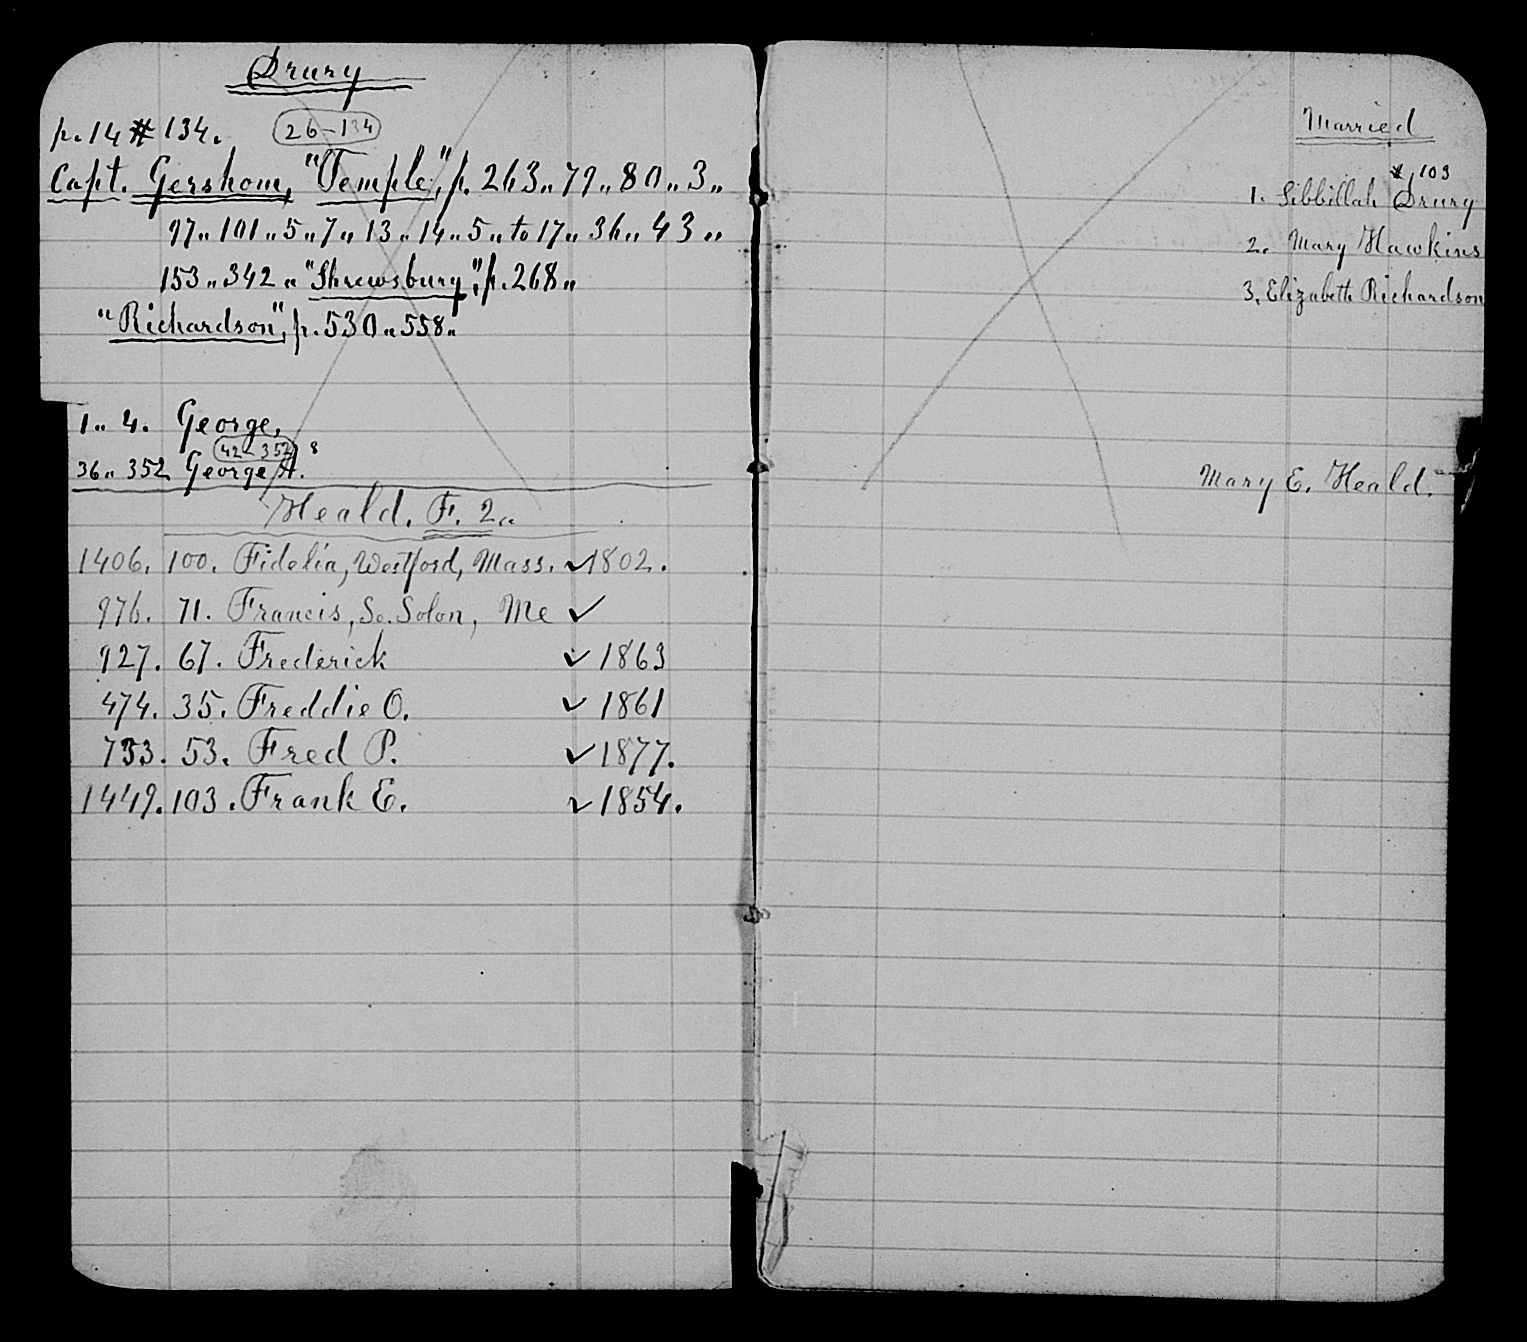 Drury
p. 14 # 134. 26-134
Capt. Gershom, "Temple", p. 263 „ 79 „ 80 „ 3 „
97 „ 101 „ 5 „ 7 „ 13 „ 14 „ 5 „ to 17 „ 36 „ 43 „
153 „ 342 „ "Shrewsbury", p. 268 „
"Richardson", p. 530 „ 558 „
1 „ 4. George,
42-352 8
36 „ 352 George A.
Heald. F. 2 „
1406. 100. Fidelia, Westford, Mass. ✓ 1802.
976. 71. Francis, So. Solon, Me ✓
927. 67. Frederick ✓ 1863
474. 35. Freddie O. ✓ 1861
733. 53. Fred P. ✓ 1877.
1449. 103. Frank E. ✓ 1854.
Married
# 103
1. Sibbillah Drury
2. Mary Hawkins
3. Elizabeth Richardson
Mary E. Heald.